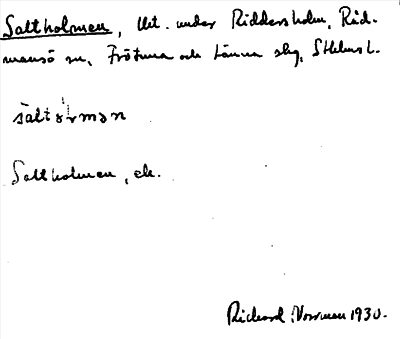 Saltholmen, lht. under Riddersholm, Råd-
mansö sn, Frötuna och Länna slg, Sthlms l.
saltormən
Saltholmen, ek.
Rickard Norrman 1930.